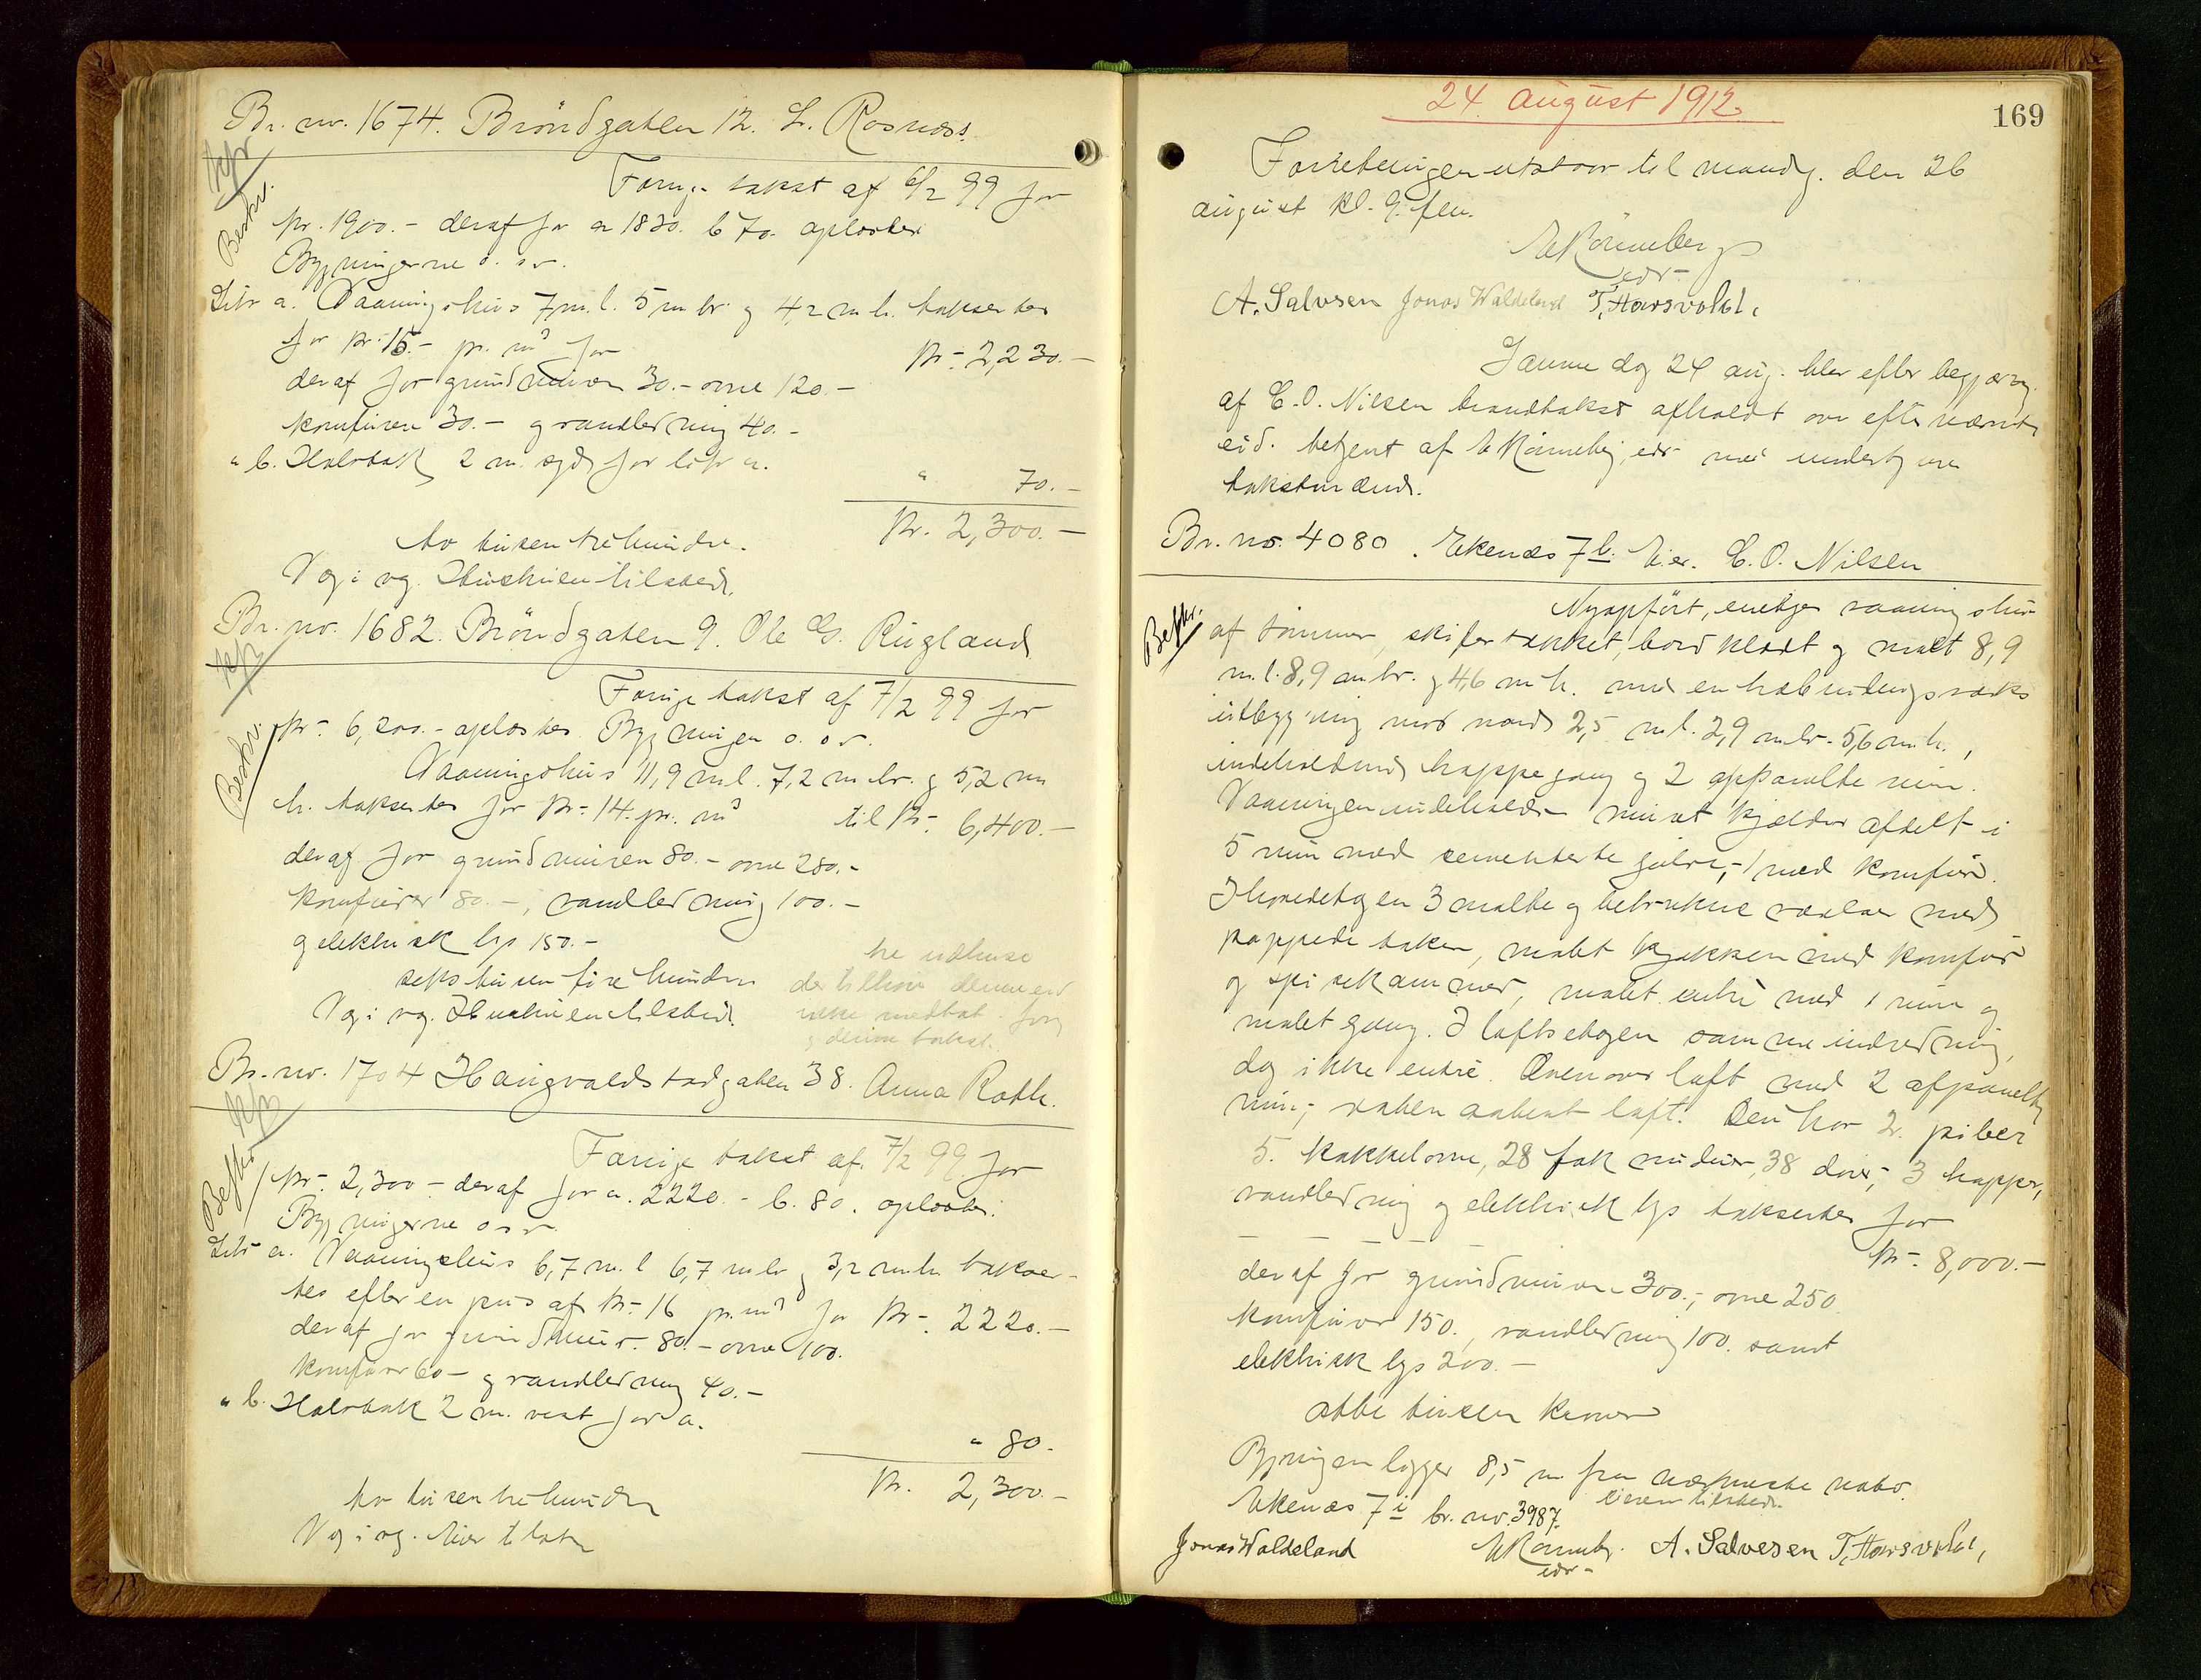 Br. nr. 1674. Bröndgaten 12. L. Rosnæss.
kfr
Beskr.
Forrige takst af 6/2 99 for
kr. 1900.- deraf for a 1830. b 70. oplæstes
Bygningerne o. s. v.
Litr a. Vaaningshus 7 m. l. 5 m br. og 4,2 m h. takseres
for kr. 15.- pr. m³ for kr. 2,230.-
deraf for grundmuren 30.- ovne 120.-
komfuren 30.- og vandledning 40.-
" b. Halvtak 2 m. syd for litr a.
" 70.-
Kr. 2,300.-
to tusen trehundre.
V og i og. Hustruen tilstede.
Br. nr. 1682. Bröndgaten 9. Ole Gs. Rugland
kfr
Beskr.
Forrige takst af 7/2 99 for
kr. 6,200.- oplæstes. Bygningen o. s. v.
Vaaningshus 11,9 m l. 7,2 m br. og 5,2 m
h. takseres for kr. 14. pr. m³ til kr. 6,400.-
deraf for grundmuren 80.- ovne 280.-
Komfurer 80.-, vandledning 100.-
og elektrisk lys 150.-
seks tusen fire hundre
V og i og. Hustruen tilstede.
tre udhuse
der tilhör denne eid
ikke medtat i forr
og denne takst.
Br. nr. 1704 Haugvaldstadgaten 38. Anna Roth.
kfr
Beskr
Forrige takst af 7/2 99 for
kr. 2,300 - deraf for a. 2220.- b. 80. oplæstes.
Bygningerne o s v.
Litr a. Vaaningshus 6,7 m. l 6,7 m br og 3,2 m h takse-
res efter en pris af kr. 16 pr. m³ for kr. 2220.-
deraf for grundmur. 80.- ovne 100.
komfurer 60 - og vandledning 40.-
" b. Halvtak 2 m. vest for a.
" 80.
Kr. 2,300.-
to tusen tre hundre
V og i og. Eier tilstede
24. august 1912.
169
Forretningen utstaar til mandag. den 26
august kl. 9. fm.
E Rönneberg
edr-
A. Salvesen Jonas Waldeland T. Haarsvold.
Samme dag 24 aug. blev efter begjæring
af C. O. Nilsen brandtakst afholdt over efternævnte
eid. betjent af E Rönneberg, edr med undertegnede
takstmænd.
Br. no. 4080. Ekenæs 7 b. Eier. C. O. Nilsen
Beskr.
Nyopfört, enetages vaaningshus
af tömmer, skifertækket, bordklædt og malt 8,9
m. l. 8,9 m br. og 4,6 m h. med en halvbindingsværks
utbygning mod nord 2,5 m l. 2,9 m br. 5,6 m h.,
indeholdende trappegang og 2 afpanelte rum.
Vaaningen indeholder muret kjælder afdelt i
5 rum med cementerte gulve, 1 med komfur.
I hovedetagen 3 malte og betrukne værelser med
pappede taker, malet kjøkken med komfur
og spisekammer, malet entré med 1 rum og
malet gang. I loftsetagen samme indredning,
dog ikke entré. Ovenover loft med 2 afpanelte
rum; resten aabent loft. Den har 2. piber
5. kakkelovne, 28 fak vinduer, 38 döre, 3 trapper,
vandledning og elektrisk lys takseres for
kr. 8,000.-
deraf for grundmuren 300.-, ovne 250.
komfurer 150., vandledning 100. samt
elektrisk lys 200.-
otte tusen kroner
Bygningen ligger 8,5 m. fra nærmeste nabo.
Ekenæs 7 i br. nr. 3987. Eieren tilstede.
Jonas Waldeland E Rönneberg. A. Salvesen T. Haarsvold,
edr-